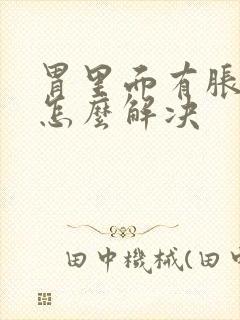 胃里面有胀
怎麼解决
田中機械(田中